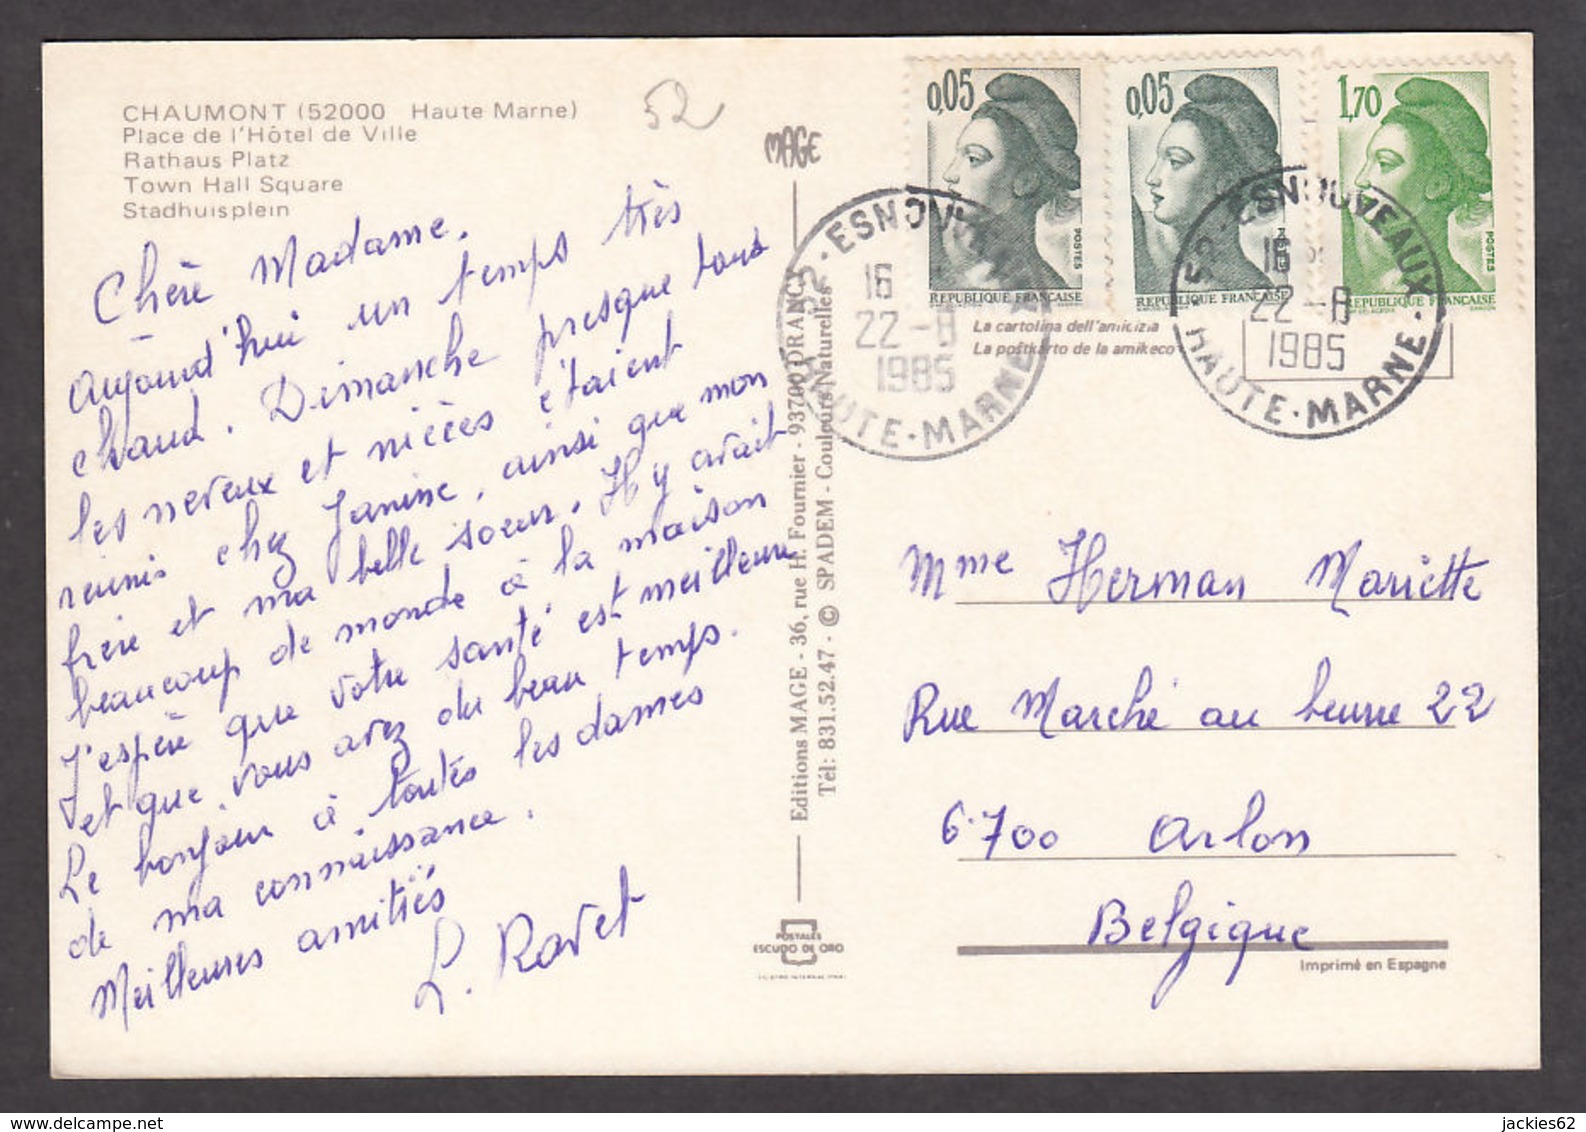 CHAUMONT (52000 Haute Marne)
Place de l'Hôtel de Ville
Rathaus Platz
Town Hall Square
Stadhuisplein
52
MAGE
Chère Madame.
Aujourd'hui un temps très
chaud. Dimanche presque tous
les neveux et nièces étaient
réunis chez Janine, ainsi que mon
frère et ma belle soeur. Il y avait
beaucoup de monde à la maison
J'espère que votre santé est meilleure
et que vous avez du beau temps.
Le bonjour à toutes les dames
de ma connaissance.
Meilleures amitiés
L. Ravet
Editions MAGE - 36, rue H. Fournier - 93700 DRANCY
Tél: 831.52.47 - © SPADEM - Couleurs Naturelles
POSTALES
ESCUDO DE ORO
0,05
POSTES
REPUBLIQUE FRANÇAISE
0,05
REPUBLIQUE FRANÇAISE
1,70
POSTES
REPUBLIQUE FRANÇAISE
52 - ESNOUVEAUX
16
22-8
1985
HAUTE-MARNE
52 - ESNOUVEAUX
16
22-8
1985
HAUTE-MARNE
La cartolina dell'amicizia
La poŝtkarto de la amikeco
Mme Herman Mariette
Rue Marché au beurre 22
6700 Arlon
Belgique
Imprimé en Espagne
jackies62